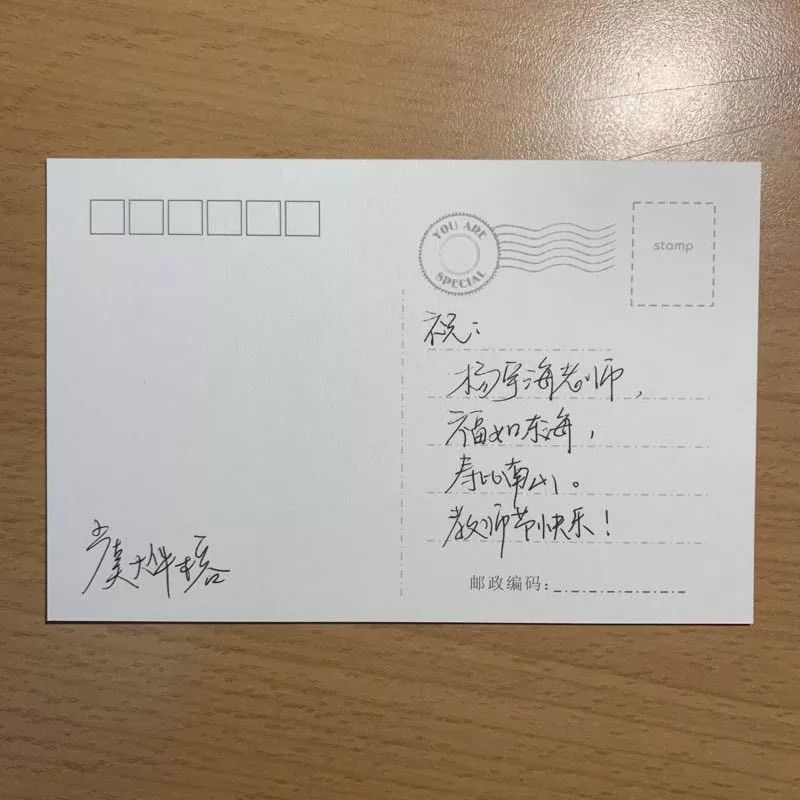 YOU ARE
SPECIAL
stamp
祝：
杨宇海老师，
福如东海，
寿比南山。
教师节快乐！
邮政编码：